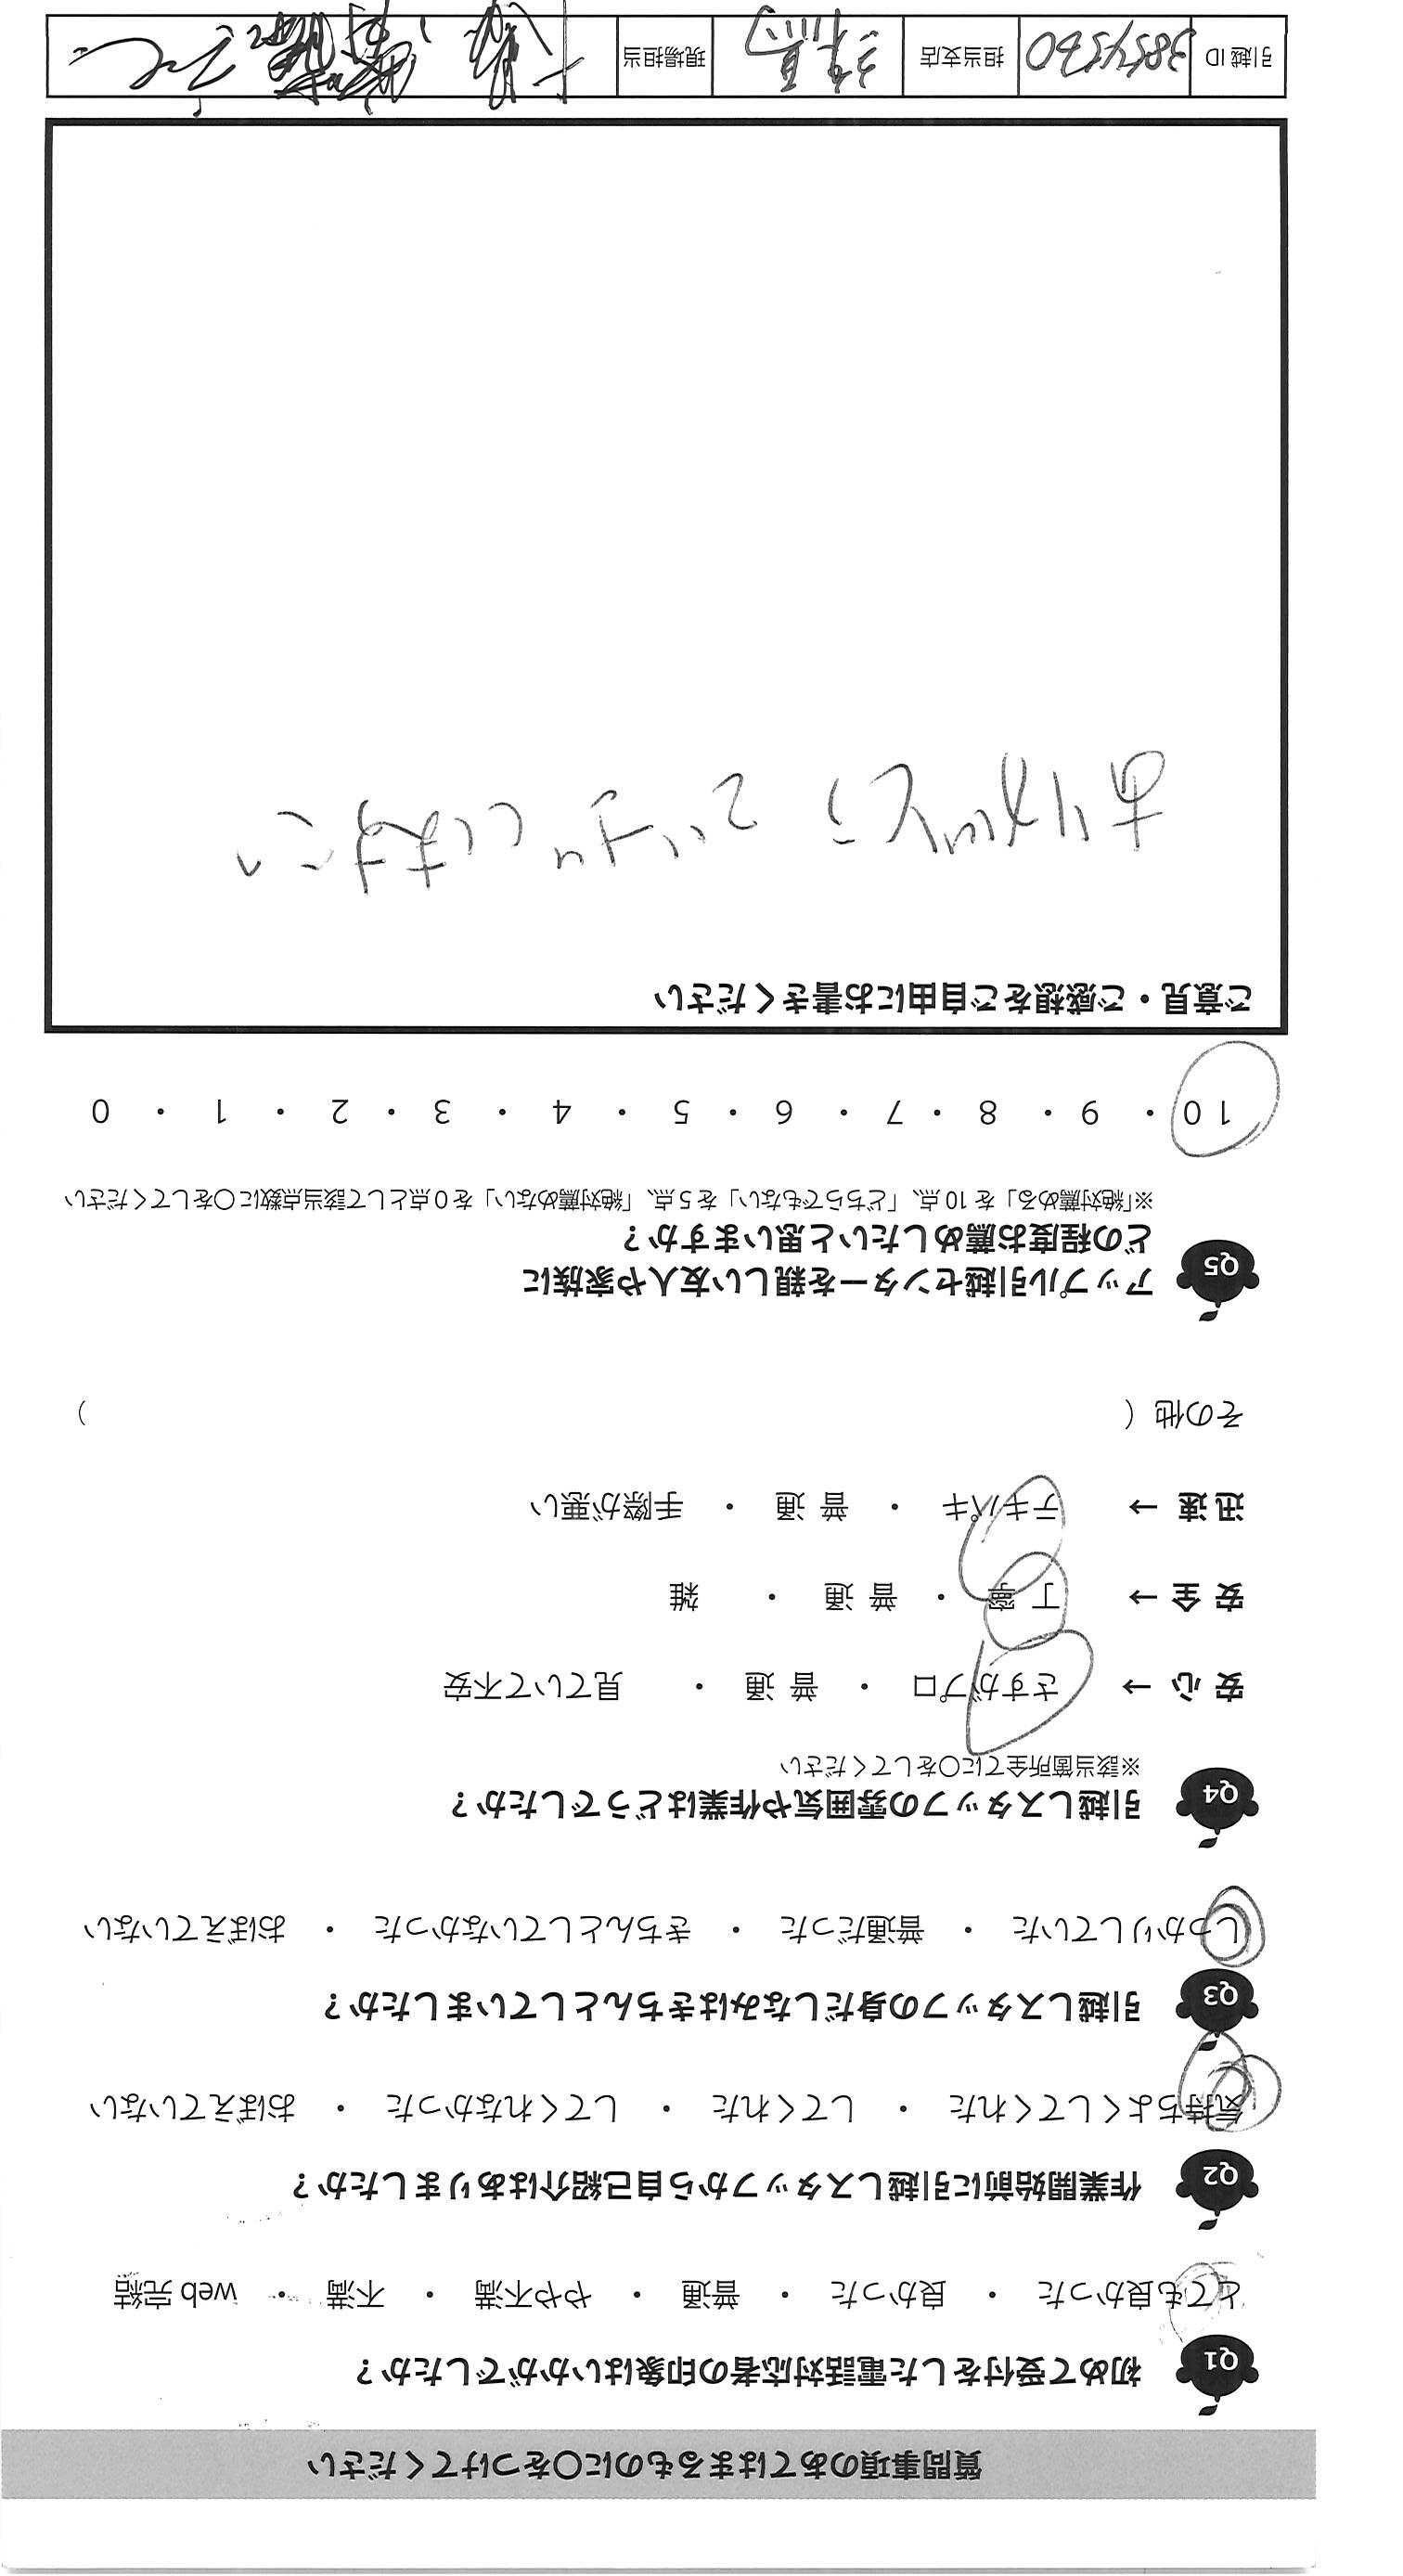 質問事項のあてはまるものに○をつけてください
Q1 初めて受付をした電話対応者の印象はいかがでしたか？
とても良かった ・ 良かった ・ 普通 ・ やや不満 ・ 不満 ・ web 完結
Q2 作業開始前に引越しスタッフから自己紹介はありましたか？
気持ちよくしてくれた ・ してくれた ・ してくれなかった ・ おぼえていない
Q3 引越しスタッフの身だしなみはきちんとしていましたか？
しっかりしていた ・ 普通だった ・ きちんとしていなかった ・ おぼえていない
Q4 引越しスタッフの雰囲気や作業はどうでしたか？
※該当箇所全てに○をしてください
安 心 → さすがプロ ・ 普 通 ・ 見ていて不安
安 全 → 丁 寧 ・ 普 通 ・ 雑
迅 速 → テキパキ ・ 普 通 ・ 手際が悪い
その他（ ）
Q5 アップル引越センターを親しい友人や家族に
どの程度お薦めしたいと思いますか？
※「絶対薦める」を 10 点、「どちらでもない」を 5 点、「絶対薦めない」を 0 点として該当点数に○をしてください
10 ・ 9 ・ 8 ・ 7 ・ 6 ・ 5 ・ 4 ・ 3 ・ 2 ・ 1 ・ 0
ご意見・ご感想をご自由にお書きください
引越 ID 担当支店 練馬 現場担当